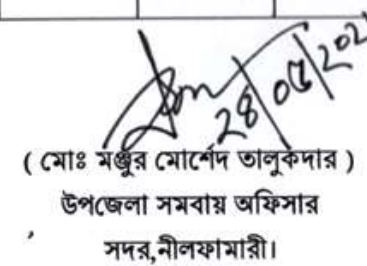 ২৪/০৫/২০২
( মোঃ মঞ্জুর মোর্শেদ তালুকদার )
উপজেলা সমবায় অফিসার
সদর,নীলফামারী।